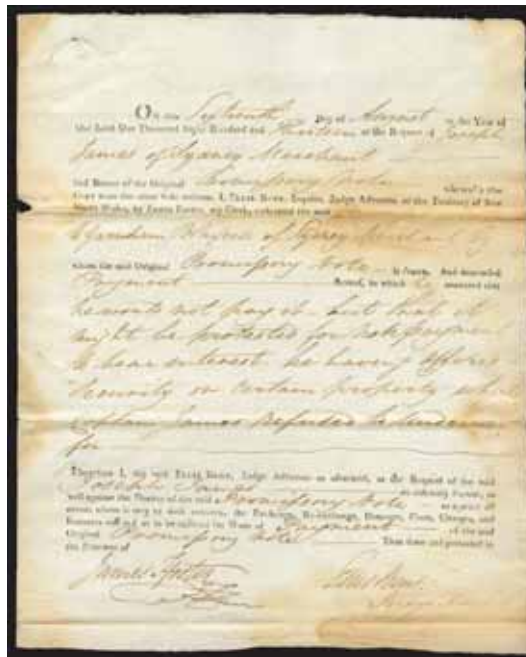 On this Sixteenth Day of August in the Year of
Our Lord One Thousand Eight Hundred and at the Request of Joseph
James of Sydney Merchant
and Bearer of the Original Promissory Note whereof a true
Copy is on the other Side written, I, Ellis Bent, Esquire, Judge Advocate of the Territory of New
South Wales, by James Foster, my Clerk, exhibited the said
of Sydney by
whom the said Original Promissory Note is drawn And demanded
Payment thereof, to which he answered that
he would not pay it but that it
might be protested for non payment
to bear interest he having offered
Security on certain property which
James Refused
for
Therefore I, the said Ellis Bent, Judge Advocate as aforesaid, at the Request of the said
Joseph James as
well against the Drawer of the said Promissory Note as against all
others whom it may concern, the Exchange, Re-exchange, Damages, Costs, Charges, and
Interests and to be suffered for Want of Payment of the said
Original Promissory Note Thus done and protested in
the Presence of
James Foster Ellis Bent